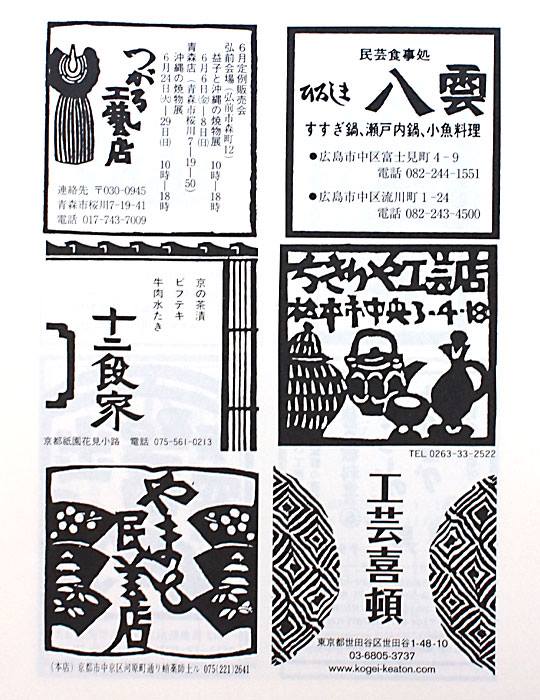 つがる
工藝店
6月定例販売会
弘前会場(弘前市森町12)
益子と沖縄の焼物展
6月6日(金)―8日(日) 10時―18時
青森店(青森市桜川7―19―50)
沖縄の焼物展
6月24日(火)―29日(日) 10時―18時
連絡先 〒030-0945
青森市桜川7-19-41
電話 017-743-7009
民芸食事処
ひろしま
八雲
すすぎ鍋、瀬戸内鍋、小魚料理
●広島市中区富士見町4-9
電話 082-244-1551
●広島市中区流川町1-24
電話 082-243-4500
京の茶漬
ビフテキ
牛肉水たき
十二段家
京都祇園花見小路 電話 075-561-0213
ちきりや工芸店
松本市中央3-4-18
TEL 0263-33-2522
やまと
民芸店
(本店)京都市中京区河原町通り蛸薬師上ル 075(221)2641
工芸喜頓
東京都世田谷区世田谷1-48-10
03-6805-3737
www.kogei-keaton.com